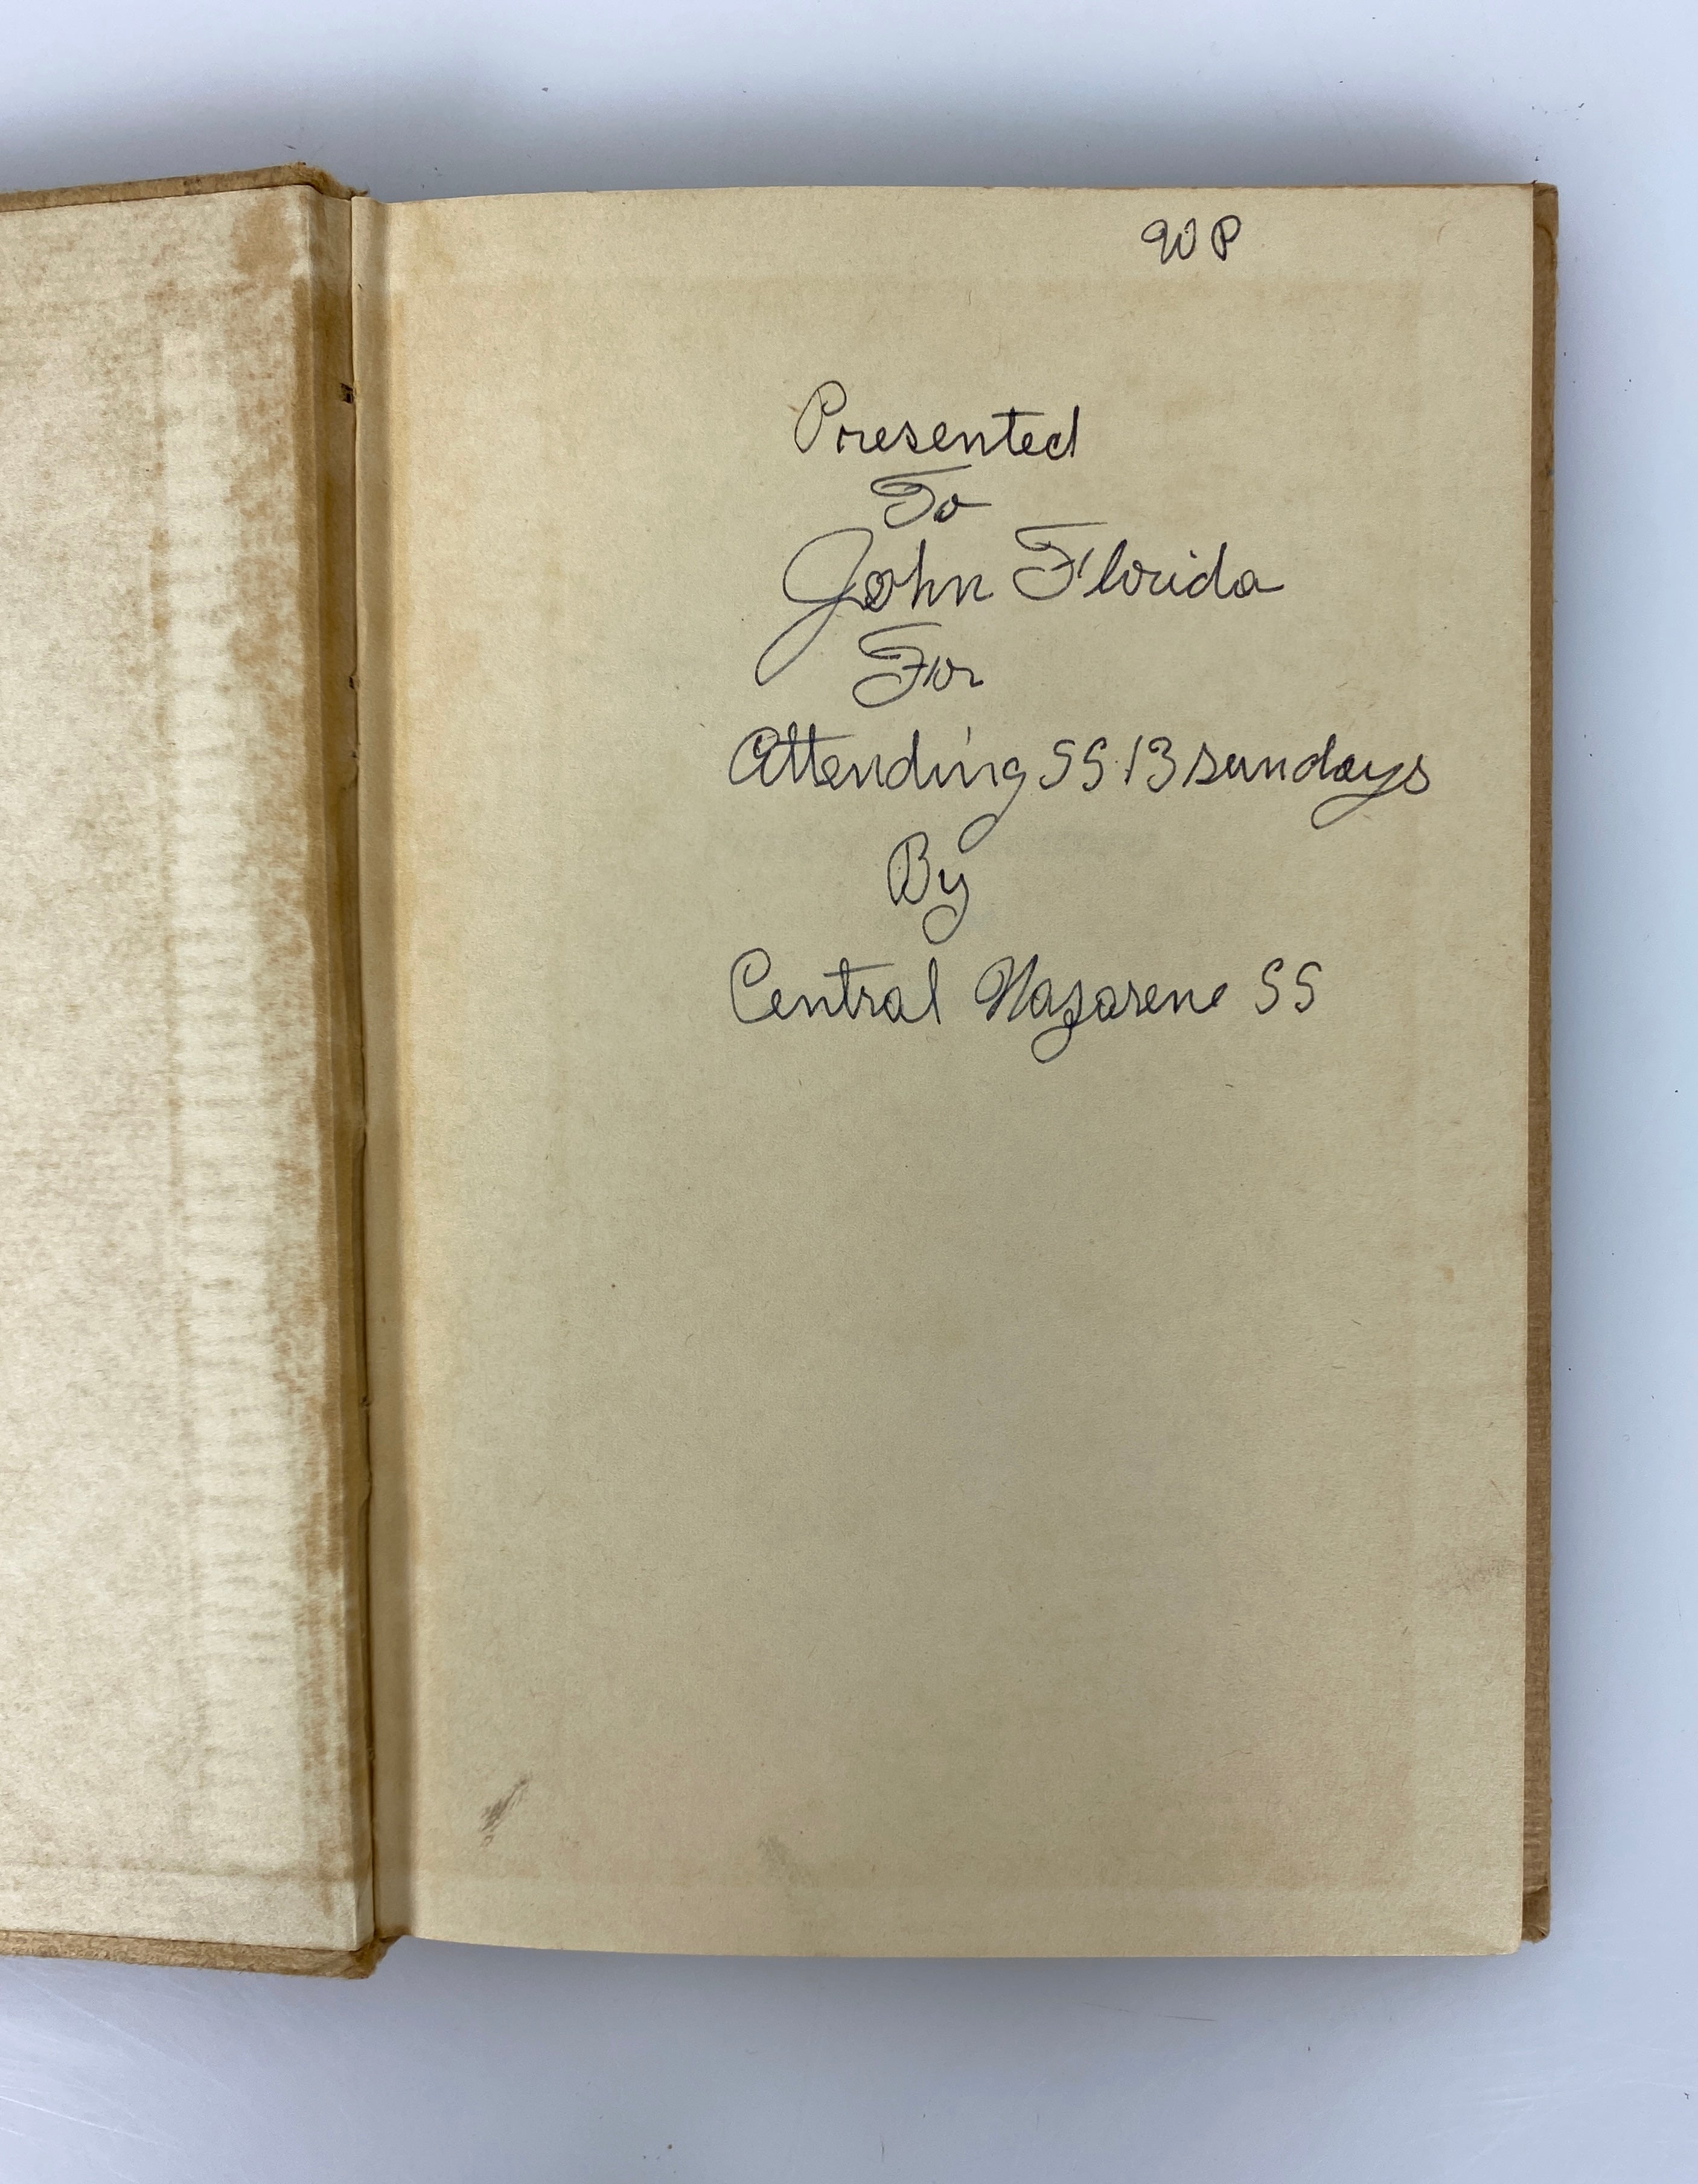 WP
Presented
To
John Florida
For
Attending SS 13 sundays
By
Central Nazarene SS